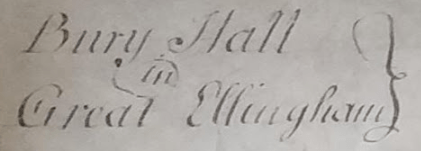 Bury Hall
in
Great Ellingham